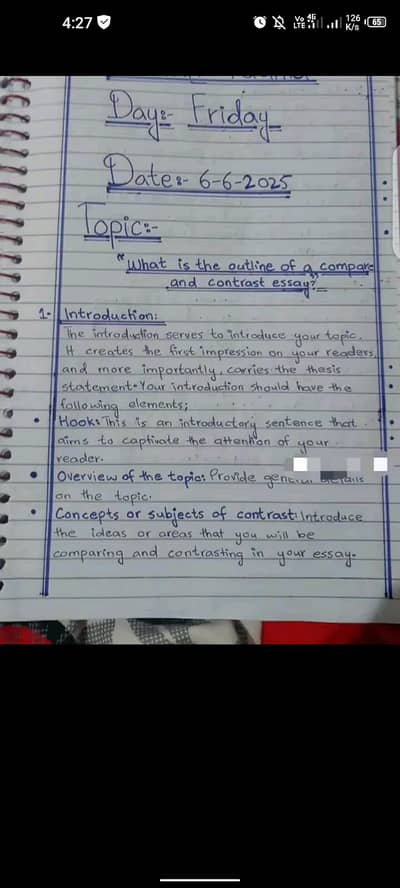 4:27
Vo LTE 4G 126 K/s 65
Day:- Friday
Date:- 6-6-2025
Topic:-
"What is the outline of a compare
and contrast essay?"
1- Introduction:
The introduction serves to introduce your topic.
It creates the first impression on your readers,
and more importantly, carries the thesis
statement. Your introduction should have the
following elements;
• Hook: This is an introductory sentence that
aims to captivate the attention of your
reader.
• Overview of the topic: Provide general details
on the topic.
• Concepts or subjects of contrast: Introduce
the ideas or areas that you will be
comparing and contrasting in your essay.